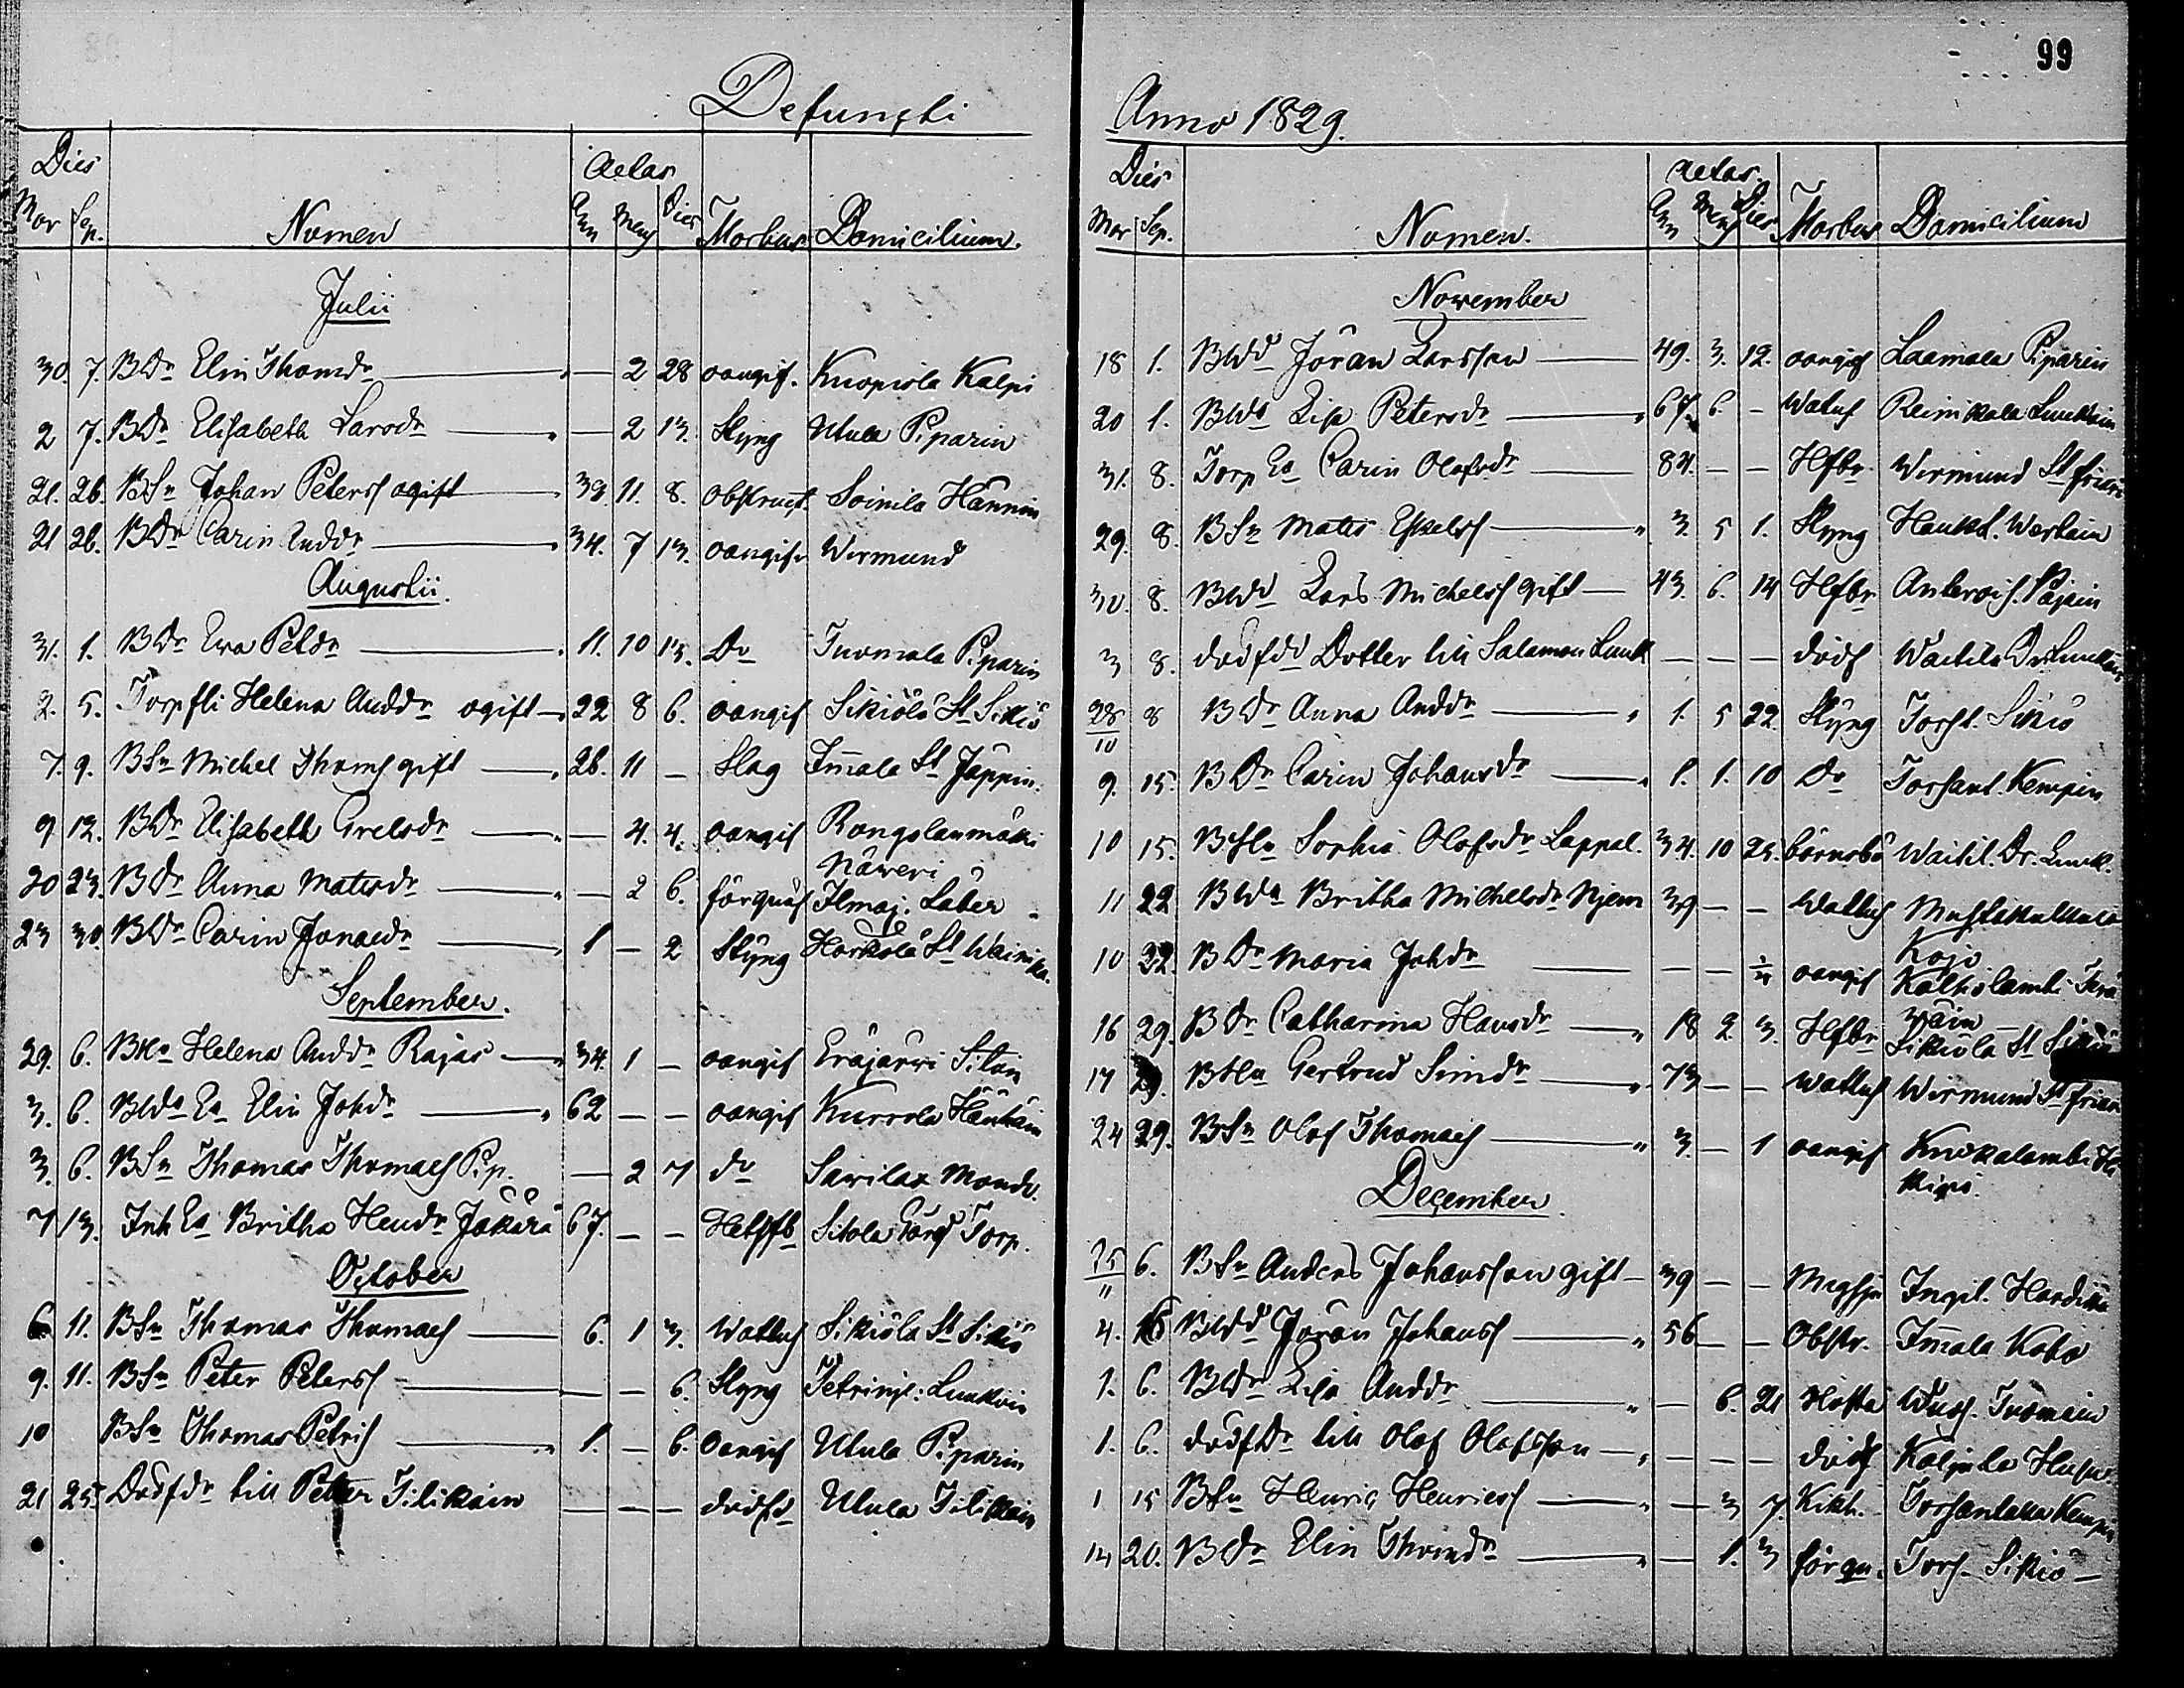 99
Defuncti
Dies Aetas
Mor Sep. Nomen Ann Mens Dies Morbus Domicilium.
Julii
30. 7. BDr Elin Thomdr — 2 28 oangif. Kuopiola Kalpi
2 7. BDr Elisabeth Larsdr — 2 13. Slyng Utula Piparin
21. 26. BSn Johan Peterss ogift 39. 11. 8. obstruct. Soinila Hännin
21 26. BDr Carin Anddr 34. 7 13. oangifv Wirmund
Augustii.
31. 1. BDr Ewa Petdr 11. 10 13. Do Tuomala Piparin
2. 5. Torpfli Helena Anddr ogift 22 8 6. oangif Sikiölö St Sikiö
7. 9. BSn Michel Thoms gift 26. 11 — Slag Immala St Jäppin.
9 12. BDr Elisabeth Grelsdr — 4. 4. oangif Rongolanmäki
Näweri
20 23. BDr Anna Matsdr — 2 6. förquäf Ilmaj. Läber
23 30. BDr Carin Jonaedr 1 — 2 Slyng Harkola St Wainika.
September.
29. 6. BHu Helena Anddr Rajas 34. 1 — oangif Eräjärwi Sitan
3. 6. BWds Ea Elin Johdr 62 — — oangif Kurrola Häuhäin
3. 6. BSn Thomas Thomaes Pip. — 2 7 do Sawilax Mondo.
7 13. Inh Ea Britha Hendr Jäkärä 67. — — Hetsfb Sitola Gård Torp.
October
6 11. BSn Thomas Thomaes 6. 1 3. Wattus Sikiölä St Sikiö
9. 11. BSn Peter Peterss — — 6. Slyng Petrinji: Luukoin
10 BSn Thomas Petris 1. — 6. Oangif Utula Piparin
21 25. Dödfdr till Petter Tilikain — — — dödfd Utula Tilikain
Anno 1829.
Dies Aetas.
Mor Sep. Nomen. Ann Mens Dies Morbus Domicilium
November
18 1. BWdd Jöran Larsson 49. 3. 12. oangif Laamala Piparin
20 1. BWds Lisa Petersdr 67. 6. — Watus Reinikala Luukoin
31. 8. Torp Ea Carin Olofsdr 84. — — Hfbr. Wirmund St
29. 8. BSn Mats Eskelss 3. 5 1. Slyng Haukd. Wartain
30. 8. BWdd Lars Michelss gift 43. 6. 14 Hfbr Anterois. Pajain
3 8. dödfdd Dotter till Salamon Luuk — — — dödf Waitila Dr Luukain
28/10 8 BDr Anna Anddr 1. 5 22. Slyng Torst. Sikiö
9. 15. BDr Carin Johansdr 1. 1. 10 Do Torsant. Kempin
10 15. BHu Sophia Olofsdr Lappal. 34. 10 25. barnsbö Waitil. Dr. Luuk.
11 22 BWds Britha Michelsdr Njem 39 — — Wattus
Kojo
10 22. BDr Maria Johdr — — oangif Kalholambi
wäin
16 29. BDr Catharina Hansdr 18 2. 3. Hfbr Sikiola St Sikiö
17 29. BHu Gertrud Simdr 73 — — Wattus Wirmund St
24 29. BSn Olof Thomaes 3. — 1 oangif Kuokalambi
December.
25/11 6. BSn Anders Johansson gift 39 — — Ingil. Hardika
4. BWdd Jöran Johanss 56 — — Obstr. Immala Koho
1. 6. BWdr Lisa Anddr — 6. 21 Hosta Wuos. Tuomain
1. 6. dödfDr till Olof Olofsson — — — dödf
1 15 BSn Henric Henricss — 3 7. Kikh. Torsantaka Kempin
14 20. BDr Elin Thomdr — 1. 3 förqu. Tors. Sikiö